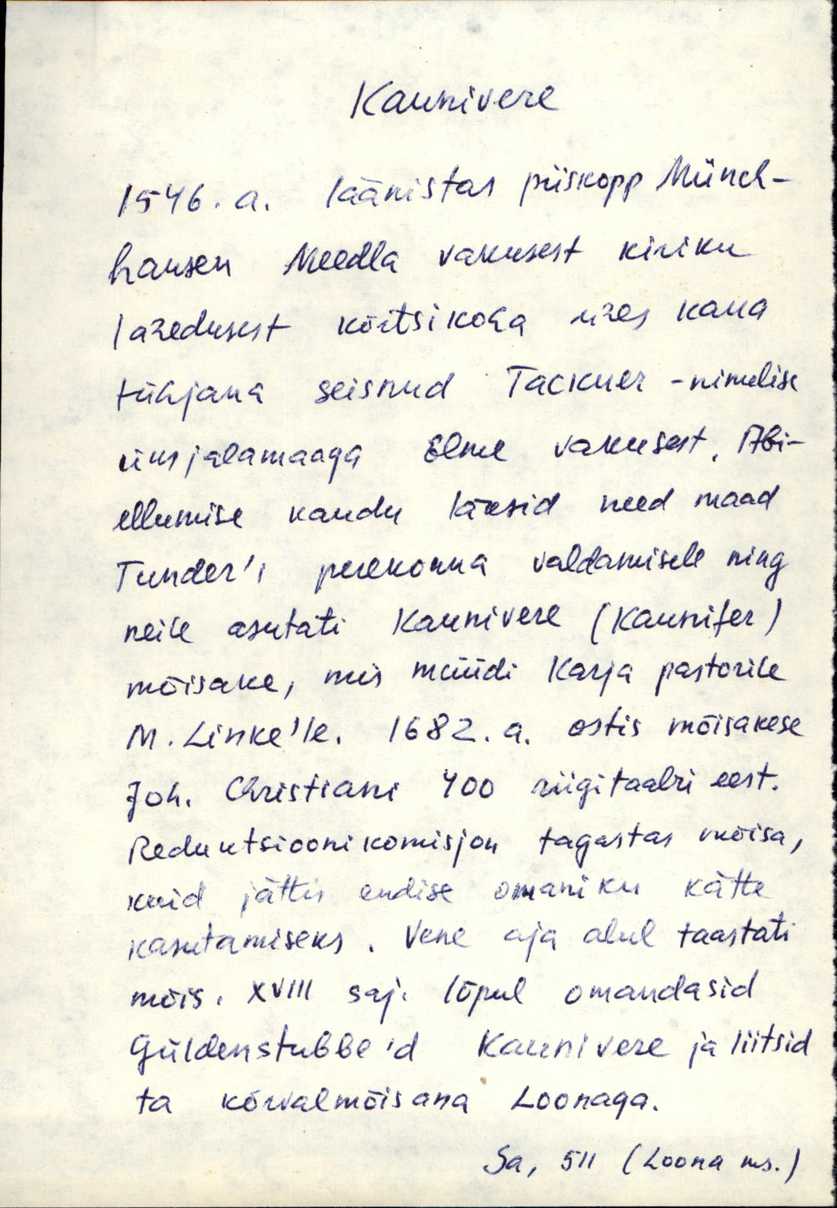 Kaunivere
1546. a. läänistas piiskopp Münch-
hausen Meedla vakusest kiriku
lähedusest kõrtsikoha ühes kaua
tühjana seisnud Tackner -nimelise
üksjalamaaga Elme vakusest. Abi-
ellumise kaudu läksid need maad
Tunder'i perekonna valdamisele ning
neile asutati Kaunivere (Kaunifer)
mõisake, mis müüdi Karja pastorile
M. Linke'le. 1682. a. ostis mõisakese
Joh. Christiani 400 riigitaalri eest.
Reduktsioonikomisjon tagastas mõisa,
kuid jättis endise omaniku kätte
kasutamiseks. Vene aja alul taastati
mõis. XVIII saj. lõpul omandasid
Güldenstubbe'd Kaunivere ja liitsid
ta kõrvalmõisana Loonaga.
Sa, 511 (Loona ms.)